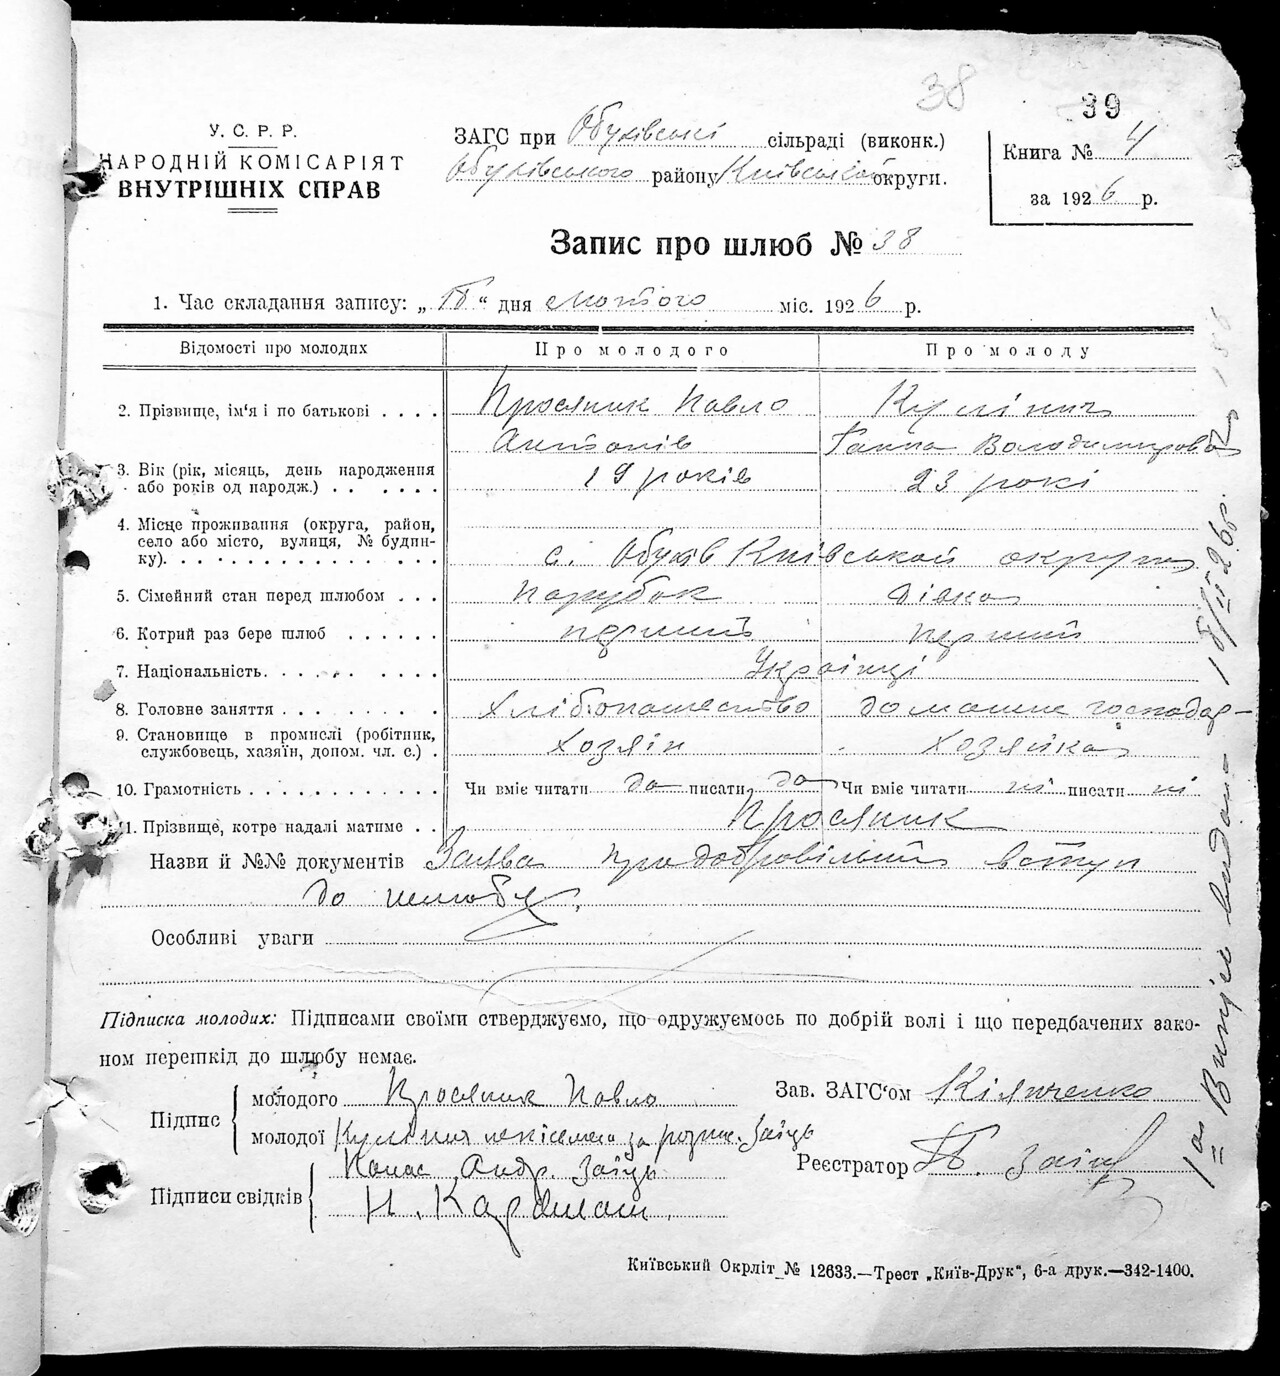 38
39
У. С. Р. Р.
НАРОДНІЙ КОМІСАРІЯТ
ВНУТРІШНІХ СПРАВ
ЗАГС при Обухівські сільраді (виконк.)
Обухівського району Київської округи.
Книга № 4
за 1926 р.
Запис про шлюб № 38
1. Час складання запису: „ “ дня лютого міс. 1926 р.
Відомості про молодих Про молодого Про молоду
2. Прізвище, ім'я і по батькові . . . . Просяник Павло Кулініч
Антонів Ганна Володимирова
3. Вік (рік, місяць, день народження 19 років 23 рокі
або років од народж.) . . . . . .
4. Місце проживання (округа, район,
село або місто, вулиця, № будин-
ку). . . . . . . . . . . . . . . с. Обухів Київської округи
5. Сімейний стан перед шлюбом . . . Парубок Дівка
6. Котрий раз бере шлюб . . . . . . перший перший
7. Національність. . . . . . . . . Українці
8. Головне заняття . . . . . . . . . Хлібопашество домашнє господар-
9. Становище в промислі (робітник,
службовець, хазяїн, допом. чл. с.) . Хозяін Хозяйка
10. Грамотність . . . . . . . . . . . Чи вміє читати да писати да Чи вміє читати ні писати ні
11. Прізвище, котре надалі матиме . . Просяник
Назви й №№ документів Заява про добровільний вступ
до шлюбу.
Особливі уваги
Підписка молодих: Підписами своїми стверджуємо, що одружуємось по добрій волі і що передбачених зако-
ном перешкід до шлюбу немає.
Підпис молодого Просяник Павло
молодої Кулініч неписьмена за розпис. Заїць
Підписи свідків Панас Андр. Заїць
Н. Кардаш
Зав. ЗАГС'ом Кіяшченко
Реєстратор П. Заіць
Київський Окрліт № 12633.—Трест „Київ-Друк“, 6-а друк.—342-1400.
Випіс видано 18/II 26 р.